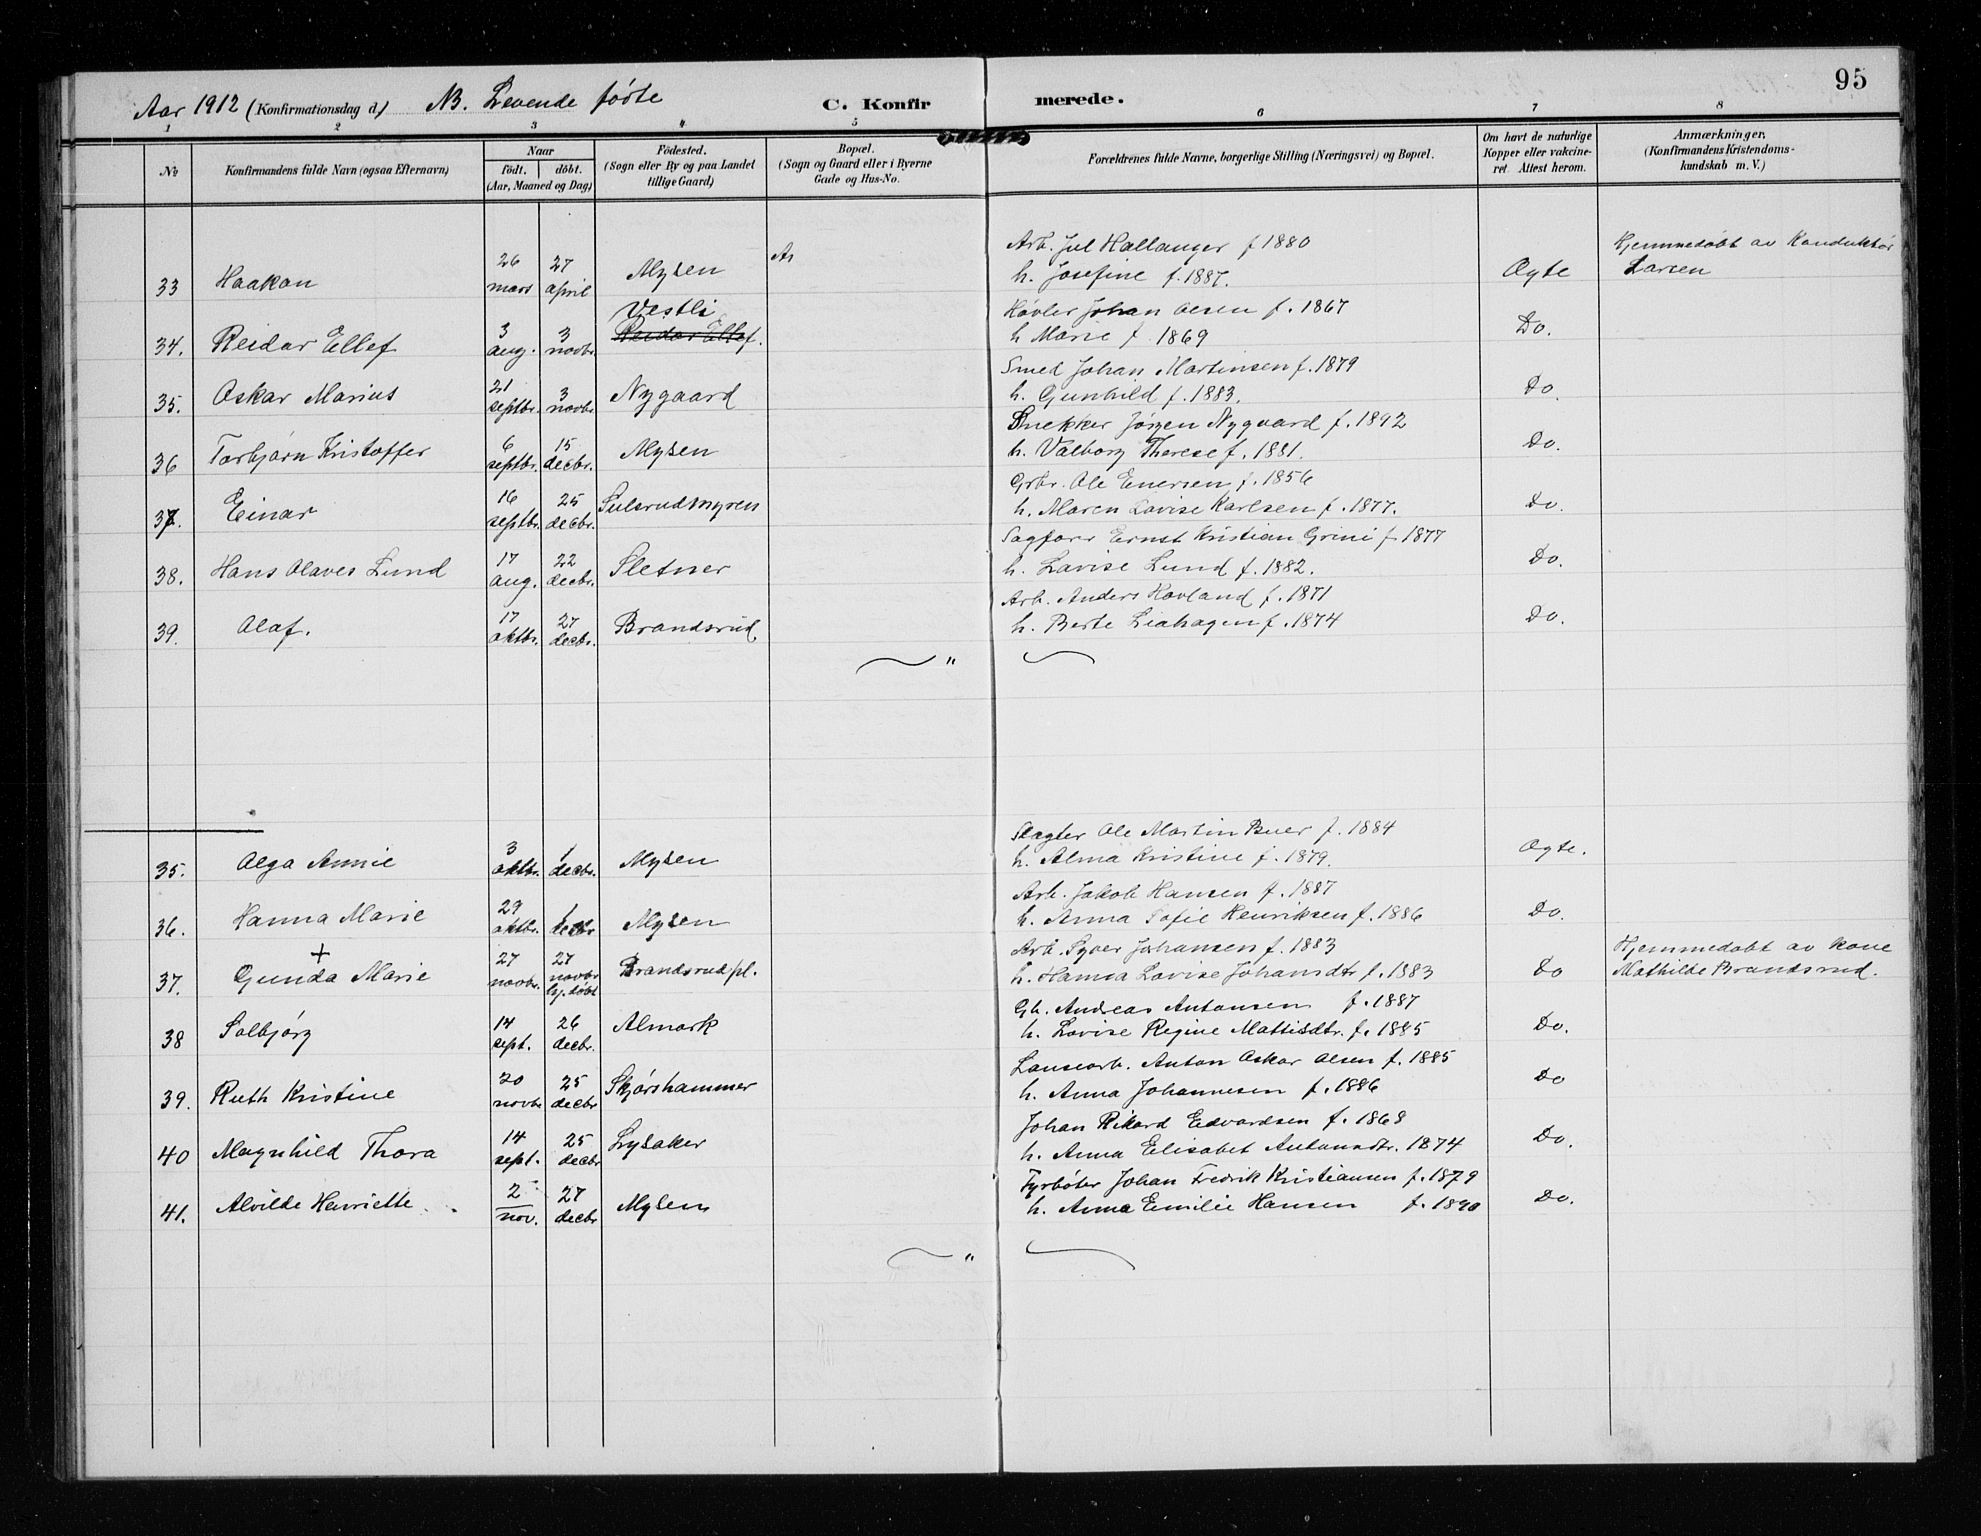 Aar 1912 (Konfirmationsdag d.) NB. Levende fødte C. Konfirmerede. 95
1 2 3 4 5 6 7 8
No
Konfirmandens fulde Navn (ogsaa Efternavn)
Naar
født. døbt.
(Aar, Maaned og Dag)
Fødested.
(Sogn eller By og paa Landet
tillige Gaard)
Bopæl.
(Sogn og Gaard eller i Byerne
Gade og Hus-No.
Forældrenes fulde Navne, borgerlige Stilling (Næringsvei) og Bopæl.
Om havt de naturlige
Kopper eller vakcine-
ret. Attest herom.
Anmærkninger.
(Konfirmandens Kristendoms-
kundskab m. V.)
33 Haakon 26 mars 27 april Mysen Ar
Arb. Jul Hallanger f 1880
h. Josefine f. 1887. Ægte
Hjemmedøbt av Konduktør
Larsen
34. Reidar Ellef 3 aug. 3 novbr. Vestli
Reidar Ellef.
Høvler Johan Olsen f. 1867
h Marie f. 1869 Do.
35. Oskar Marius 21 septbr. 3 novbr Nygaard
Smed Johan Martinsen f. 1879
h. Gunhild f. 1883. Do.
36 Torbjørn Kristoffer 6 septbr. 15 decbr. Mysen
Snekker Jørgen Nygaard f. 1892
h. Valborg Therese f. 1881. Do.
37. Einar 16 septbr. 25 decbr. Sulerudmyren
Grbr. Ole Enersen f. 1856
h. Maren Lovise Karlsen f. 1877. Do.
38. Hans Olaves Lund 17 aug. 22 decbr. Sletner
Sagforr Ernst Kristian Grini f 1877
h. Lovise Lund f. 1882. Do.
39. Olaf. 17 oktbr. 27 decbr. Brandsrud
Arb. Anders Hovland f. 1871
h. Berte Liahagen f. 1874 Do.
"
35. Olga Annie 3 oktbr. 1 decbr. Mysen
Slagter Ole Martin Buer f. 1884
h. Alma Kristine f. 1879. Ægte.
36. Hanna Marie 29 oktbr. 1 decbr Mysen
Arb. Jakob Hansen f. 1887
h. Anna Sofie Henriksen f. 1886 Do.
+
37. Gunda Marie 27 novbr. 27 novbr hj. døbt Brandsrud pl.
Arb. Syver Johansen f. 1883
h. Hanna Lovise Johansdtr f. 1883 Do
Hjemmedøbt av kone
Mathilde Brandsrud.
38 Solbjørg 14 sept. 26 decbr. Almork
Gb. Andreas Antonsen f. 1887
h. Lovise Regine Mattisdtr. f. 1885 Do.
39. Ruth Kristine 20 novbr 25 decbr Skjørshammer
Anton Oskar Olsen f. 1885
h. Anna Johannesen f. 1886 Do
40 Magnhild Thora 14 sept. 25 decbr Lysaker
Johan Rikard Edvardsen f. 1868
h. Anna Elisabet Antonsdtr. 1874 Do.
41. Alvilde Henriette 2 nov. 27 decbr Mysen
Fyrbøter Johan Fredrik Kristiansen f. 1879
h. Anna Emilie Hansen f. 1890 Do.
"